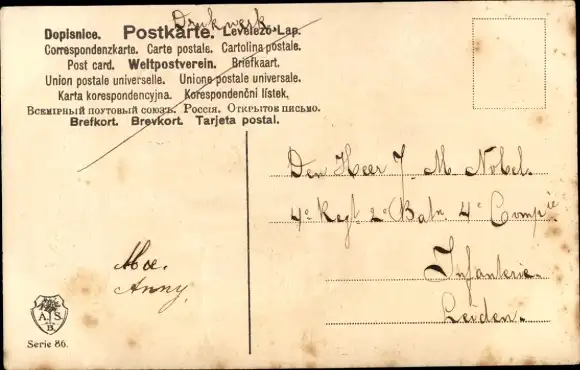 Drukwerk
Dopisnice. Postkarte. Levelező-Lap.
Correspondenzkarte. Carte postale. Cartolina postale.
Post card. Weltpostverein. Briefkaart.
Union postale universelle. Unione postale universale.
Karta korespondencyjna. Korespondenční lístek.
Всемірный почтовый союзъ. Россія. Открытое письмо.
Brefkort. Brevkort. Tarjeta postal.
Den Heer J. M. Nobel.
4e Regt 2e Batn. 4e Compie
Infanterie.
Leiden.
Anny,
A. S.
B.
Serie 86.